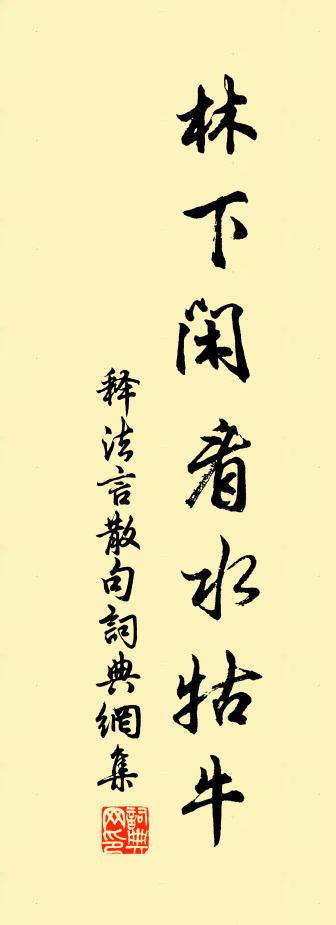 林下闲看水牯牛
释法言散句詞典網集
詞典网印